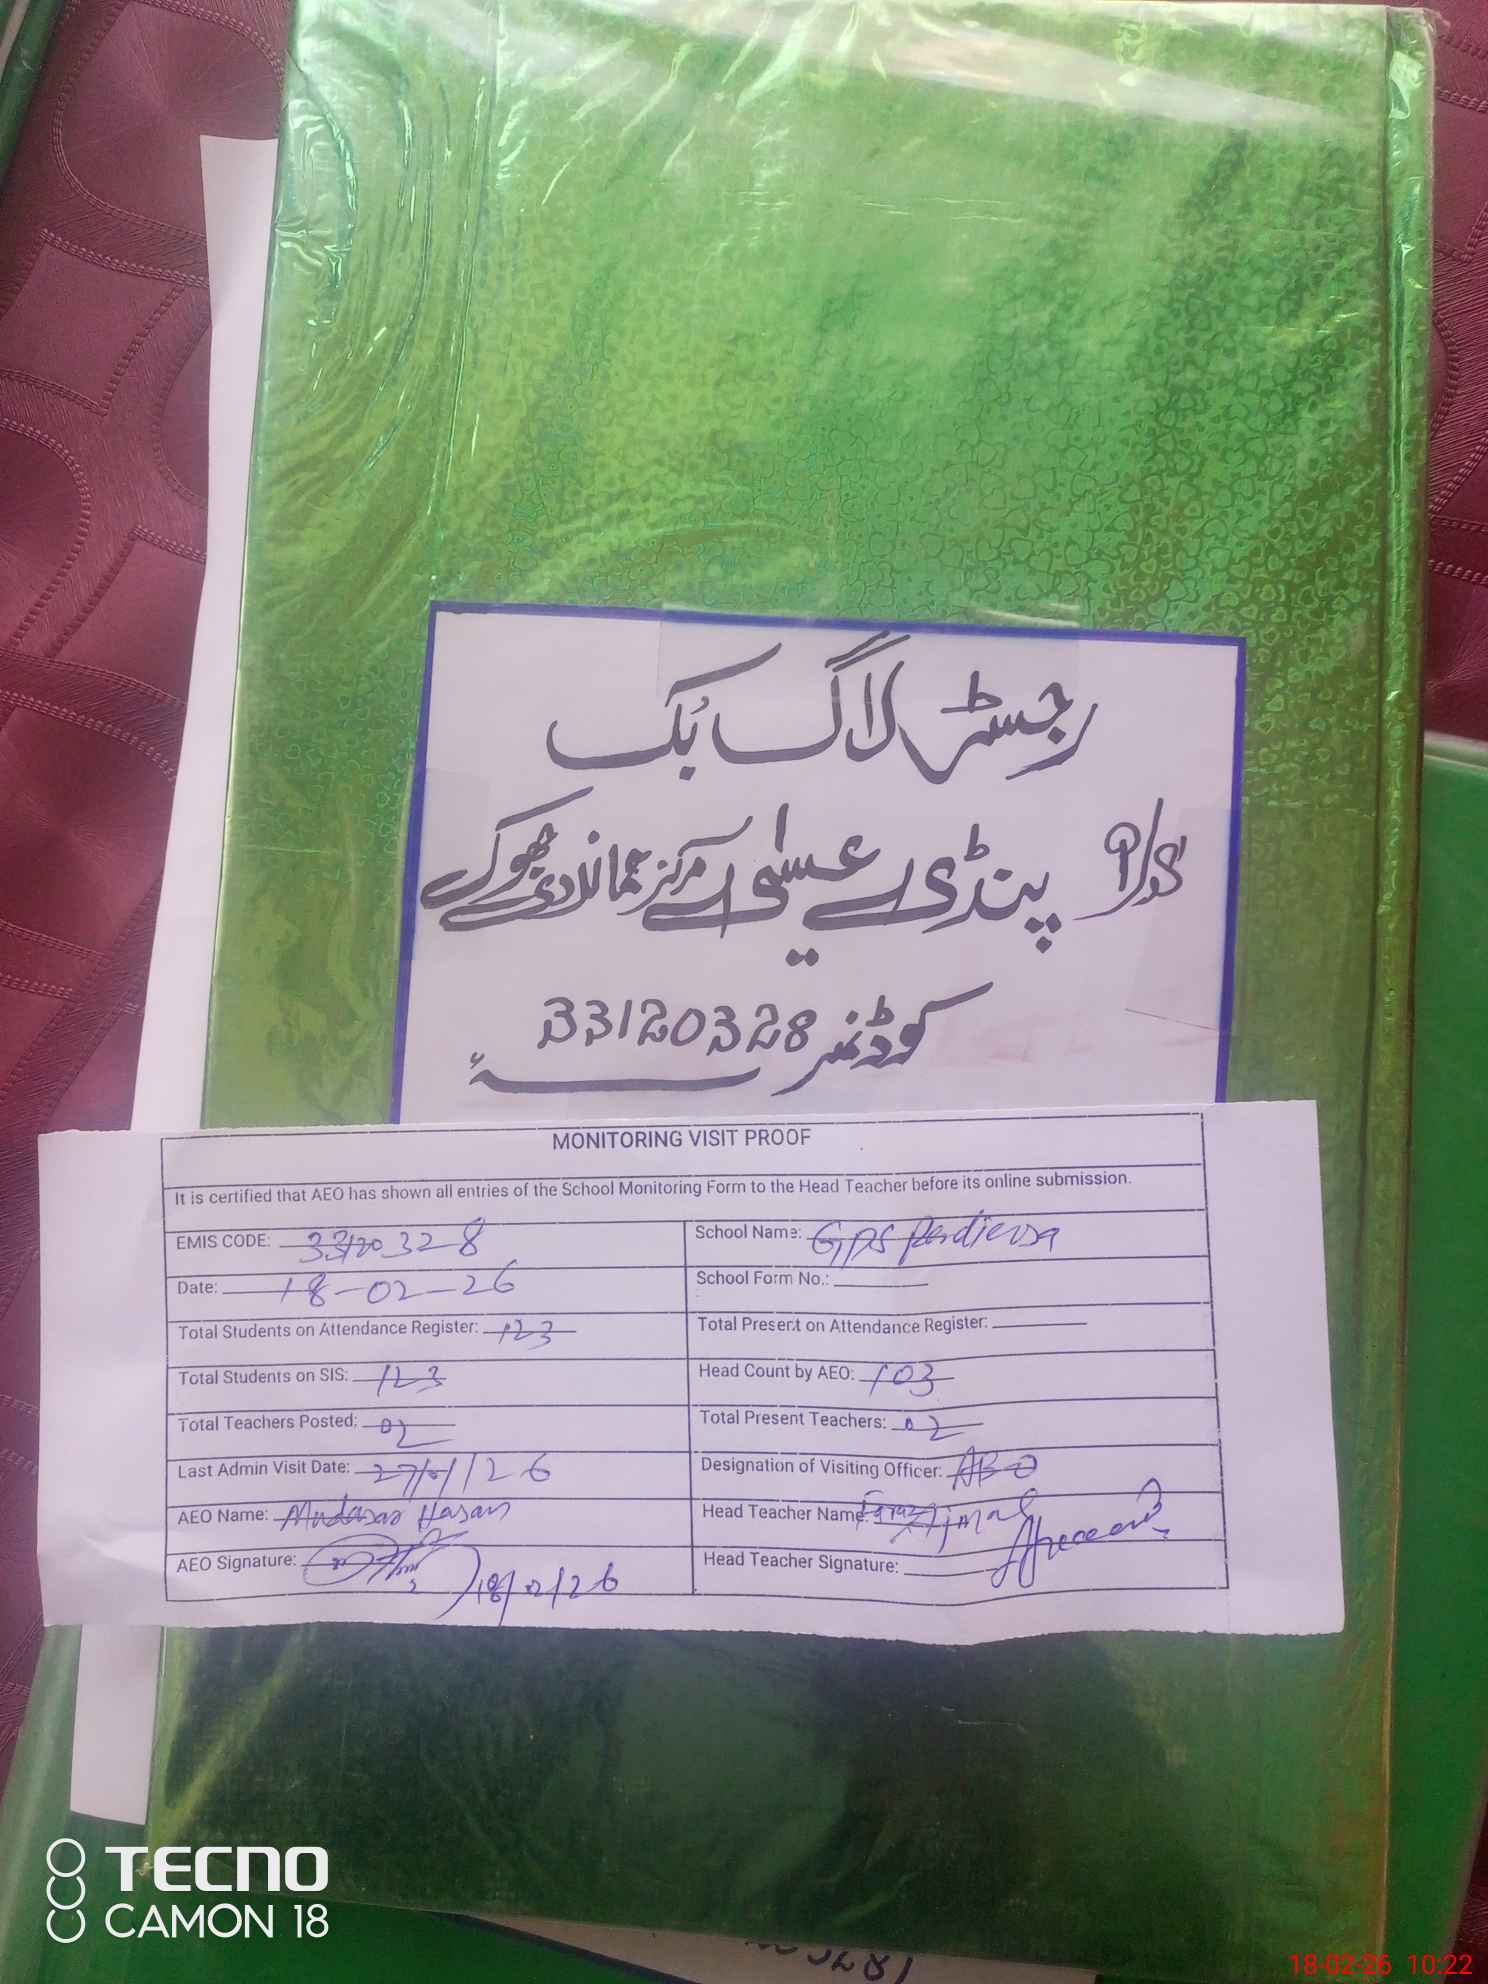 رجسٹر لاگ بک
پنڈی عیسیٰ مرکز
کوڈ نمبر 33120328
MONITORING VISIT PROOF
It is certified that AEO has shown all entries of the School Monitoring Form to the Head Teacher before its online submission.
EMIS CODE: 33120328 School Name: GPS
Date: 18-02-26 School Form No.:
Total Students on Attendance Register: 123 Total Present on Attendance Register:
Total Students on SIS: 123 Head Count by AEO: 103
Total Teachers Posted: 02 Total Present Teachers: 02
Last Admin Visit Date: 27/01/26 Designation of Visiting Officer:
AEO Name: Mudasar Hasan Head Teacher Name:
AEO Signature: 18/02/26 Head Teacher Signature:
TECNO
CAMON 18
18-02-26 10:22